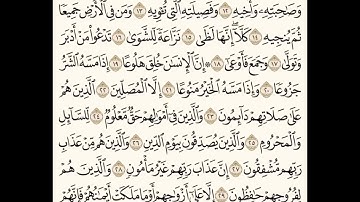 وَصَٰحِبَتِهِۦ وَأَخِيهِ ١٢ وَفَصِيلَتِهِ ٱلَّتِي تُـْٔوِيهِ ١٣ وَمَن فِي ٱلْأَرْضِ جَمِيعًا
ثُمَّ يُنجِيهِ ١٤ كَلَّآ إِنَّهَا لَظَىٰ ١٥ نَزَّاعَةً لِّلشَّوَىٰ ١٦ تَدْعُوا۟ مَنْ أَدْبَرَ
وَتَوَلَّىٰ ١٧ وَجَمَعَ فَأَوْعَىٰٓ ١٨ ۞ إِنَّ ٱلْإِنسَٰنَ خُلِقَ هَلُوعًا ١٩ إِذَا مَسَّهُ ٱلشَّرُّ
جَزُوعًا ٢٠ وَإِذَا مَسَّهُ ٱلْخَيْرُ مَنُوعًا ٢١ إِلَّا ٱلْمُصَلِّينَ ٢٢ ٱلَّذِينَ هُمْ
عَلَىٰ صَلَاتِهِمْ دَآئِمُونَ ٢٣ وَٱلَّذِينَ فِيٓ أَمْوَٰلِهِمْ حَقٌّ مَّعْلُومٌ ٢٤ لِّلسَّآئِلِ
وَٱلْمَحْرُومِ ٢٥ وَٱلَّذِينَ يُصَدِّقُونَ بِيَوْمِ ٱلدِّينِ ٢٦ وَٱلَّذِينَ هُم مِّنْ عَذَابِ
رَبِّهِم مُّشْفِقُونَ ٢٧ إِنَّ عَذَابَ رَبِّهِمْ غَيْرُ مَأْمُونٍ ٢٨ وَٱلَّذِينَ هُمْ
لِفُرُوجِهِمْ حَٰفِظُونَ ٢٩ إِلَّا عَلَىٰٓ أَزْوَٰجِهِمْ أَوْ مَا مَلَكَتْ أَيْمَٰنُهُمْ فَإِنَّهُمْ